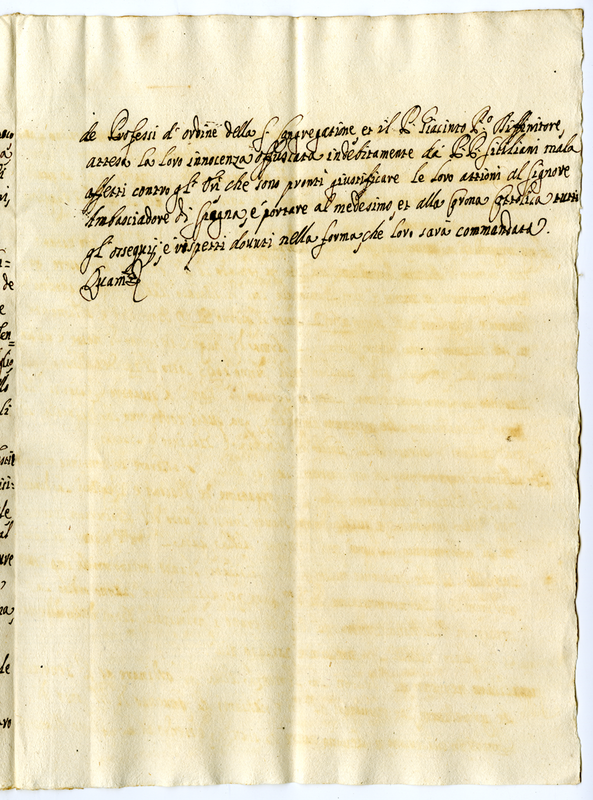 de Professi d'ordine della S. Congregatione et il P. Giacinto P.o Diffinitore
attesa la loro innocenza offuscata indebitamente da P.P. Siciliani mala
affetti contro gl'Ori che sono pronti giustificare le loro attioni al Signore
Ambasciadore di Spagna, e portare al medesimo et alla Corona Cattolica tutti
gl'ossequij, e rispetti dovuti nella forma, che loro sara commandata.
Quam